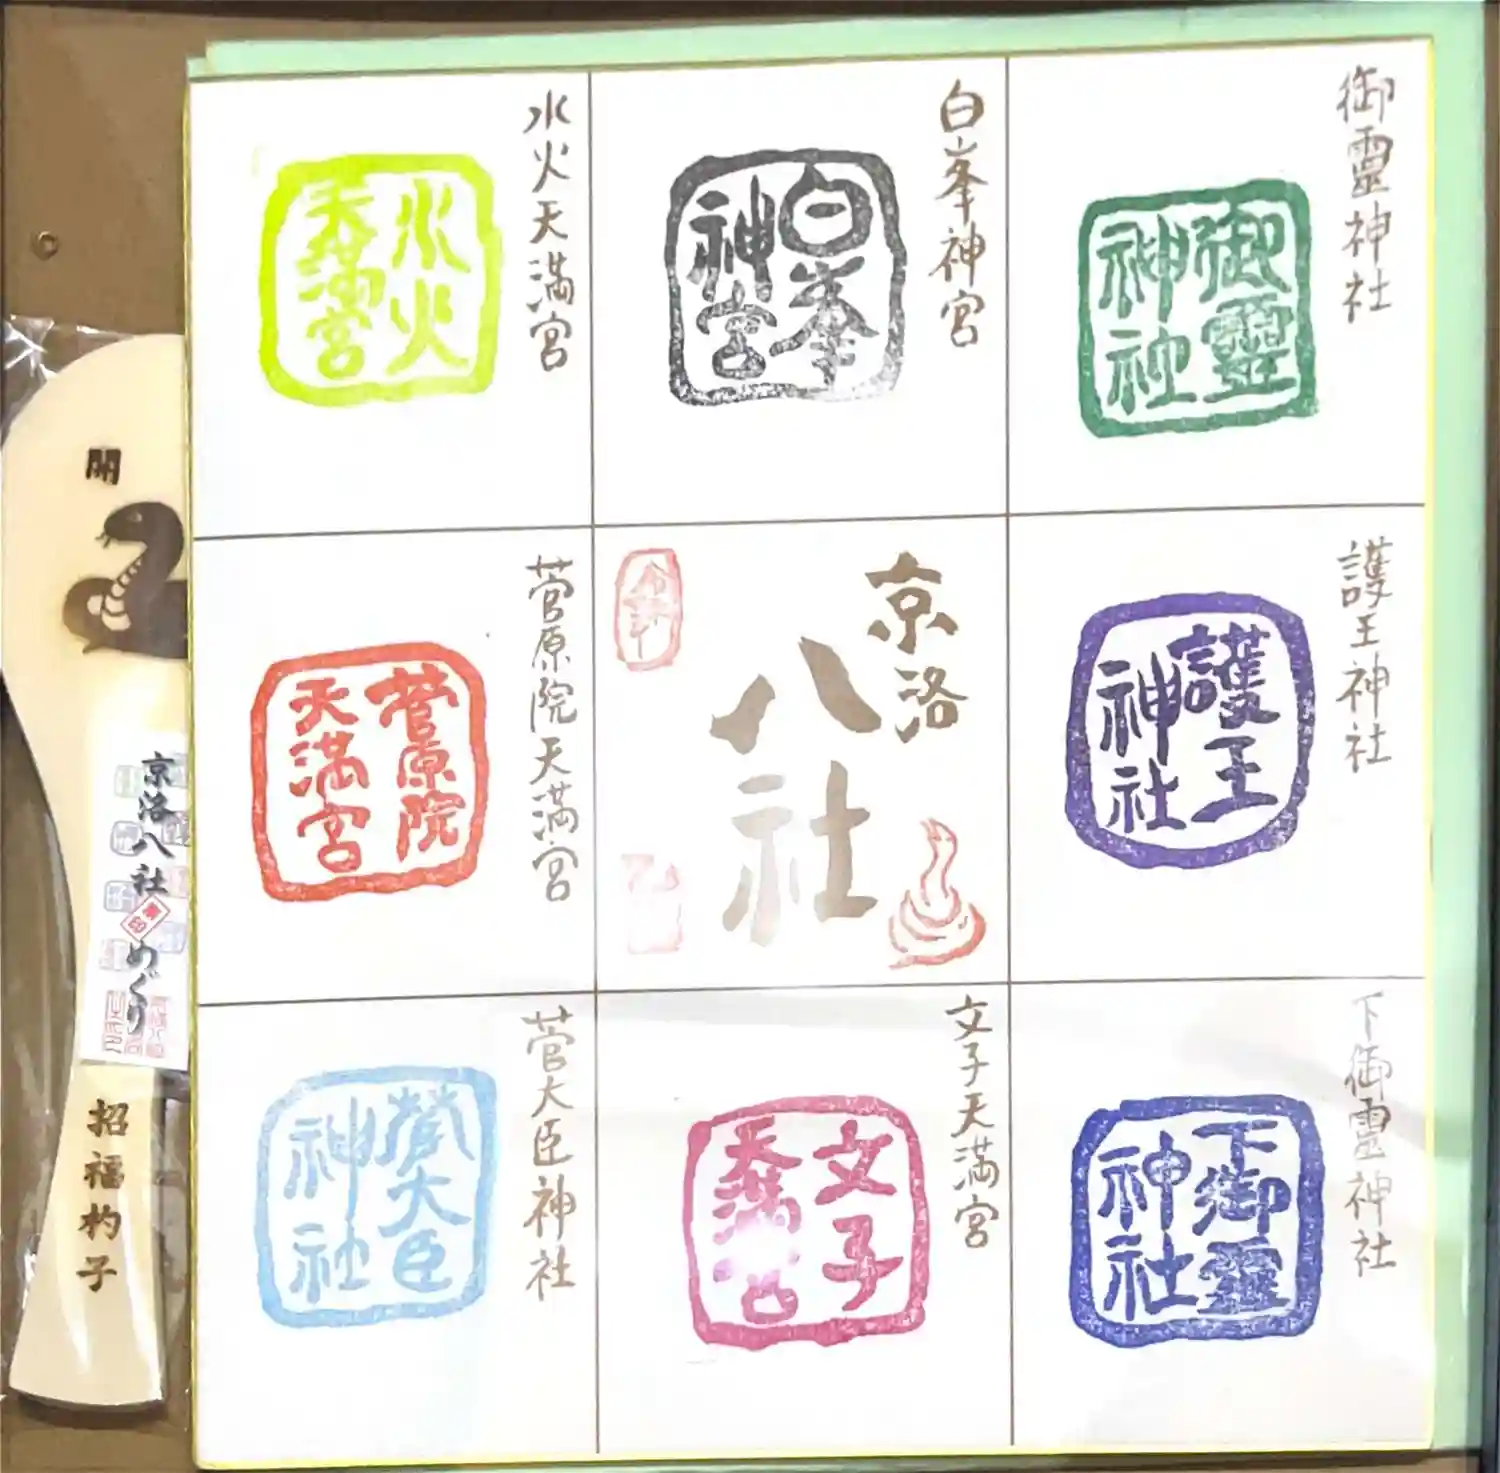 御靈神社
御靈神社
白峯神宮
白峯神宮
水火天満宮
水火天満宮
護王神社
護王神社
京洛
八社
菅原院天満宮
菅原院天満宮
下御靈神社
下御靈神社
文子天満宮
文子天満宮
菅大臣神社
菅大臣神社
開
京洛八社
集印
めぐり
招福杓子